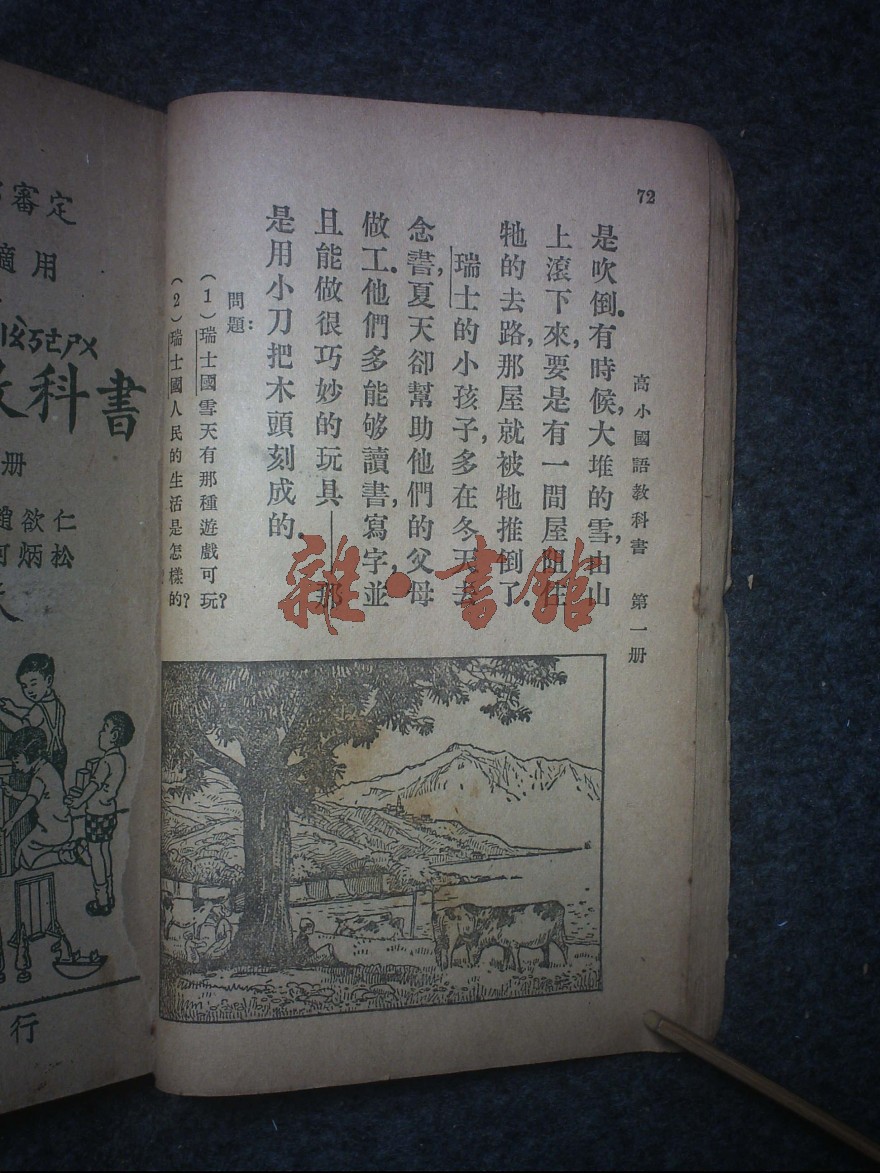 72
高小國語教科書 第一册
是吹倒。有時候，大堆的雪，由山
上滾下來，要是有一間屋阻住
牠的去路，那屋就被牠推倒了。
瑞士的小孩子，多在冬天去
念書，夏天卻幫助他們的父母
做工。他們多能够讀書，寫字，並
且能做很巧妙的玩具——那
是用小刀把木頭刻成的。
問題：
（1）瑞士國雪天有那種遊戲可玩？
（2）瑞士國人民的生活是怎樣的？
雜·書館
審定
適用
科書
册
趙欲仁
何炳松
行